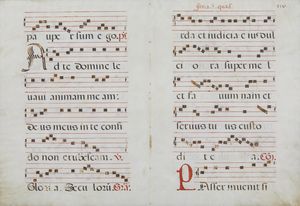 pauper sum ego. ps
Ad te domine le
uaui animam meam:
Deus meus in te confi
do non erubescam. V.
Gloria. Seculorũ. Gra.
da et iudicia eius dul
ci ora super mel
et fa uum nam et
seruus tuus custo
di te a. Co.
Passer inuenit si